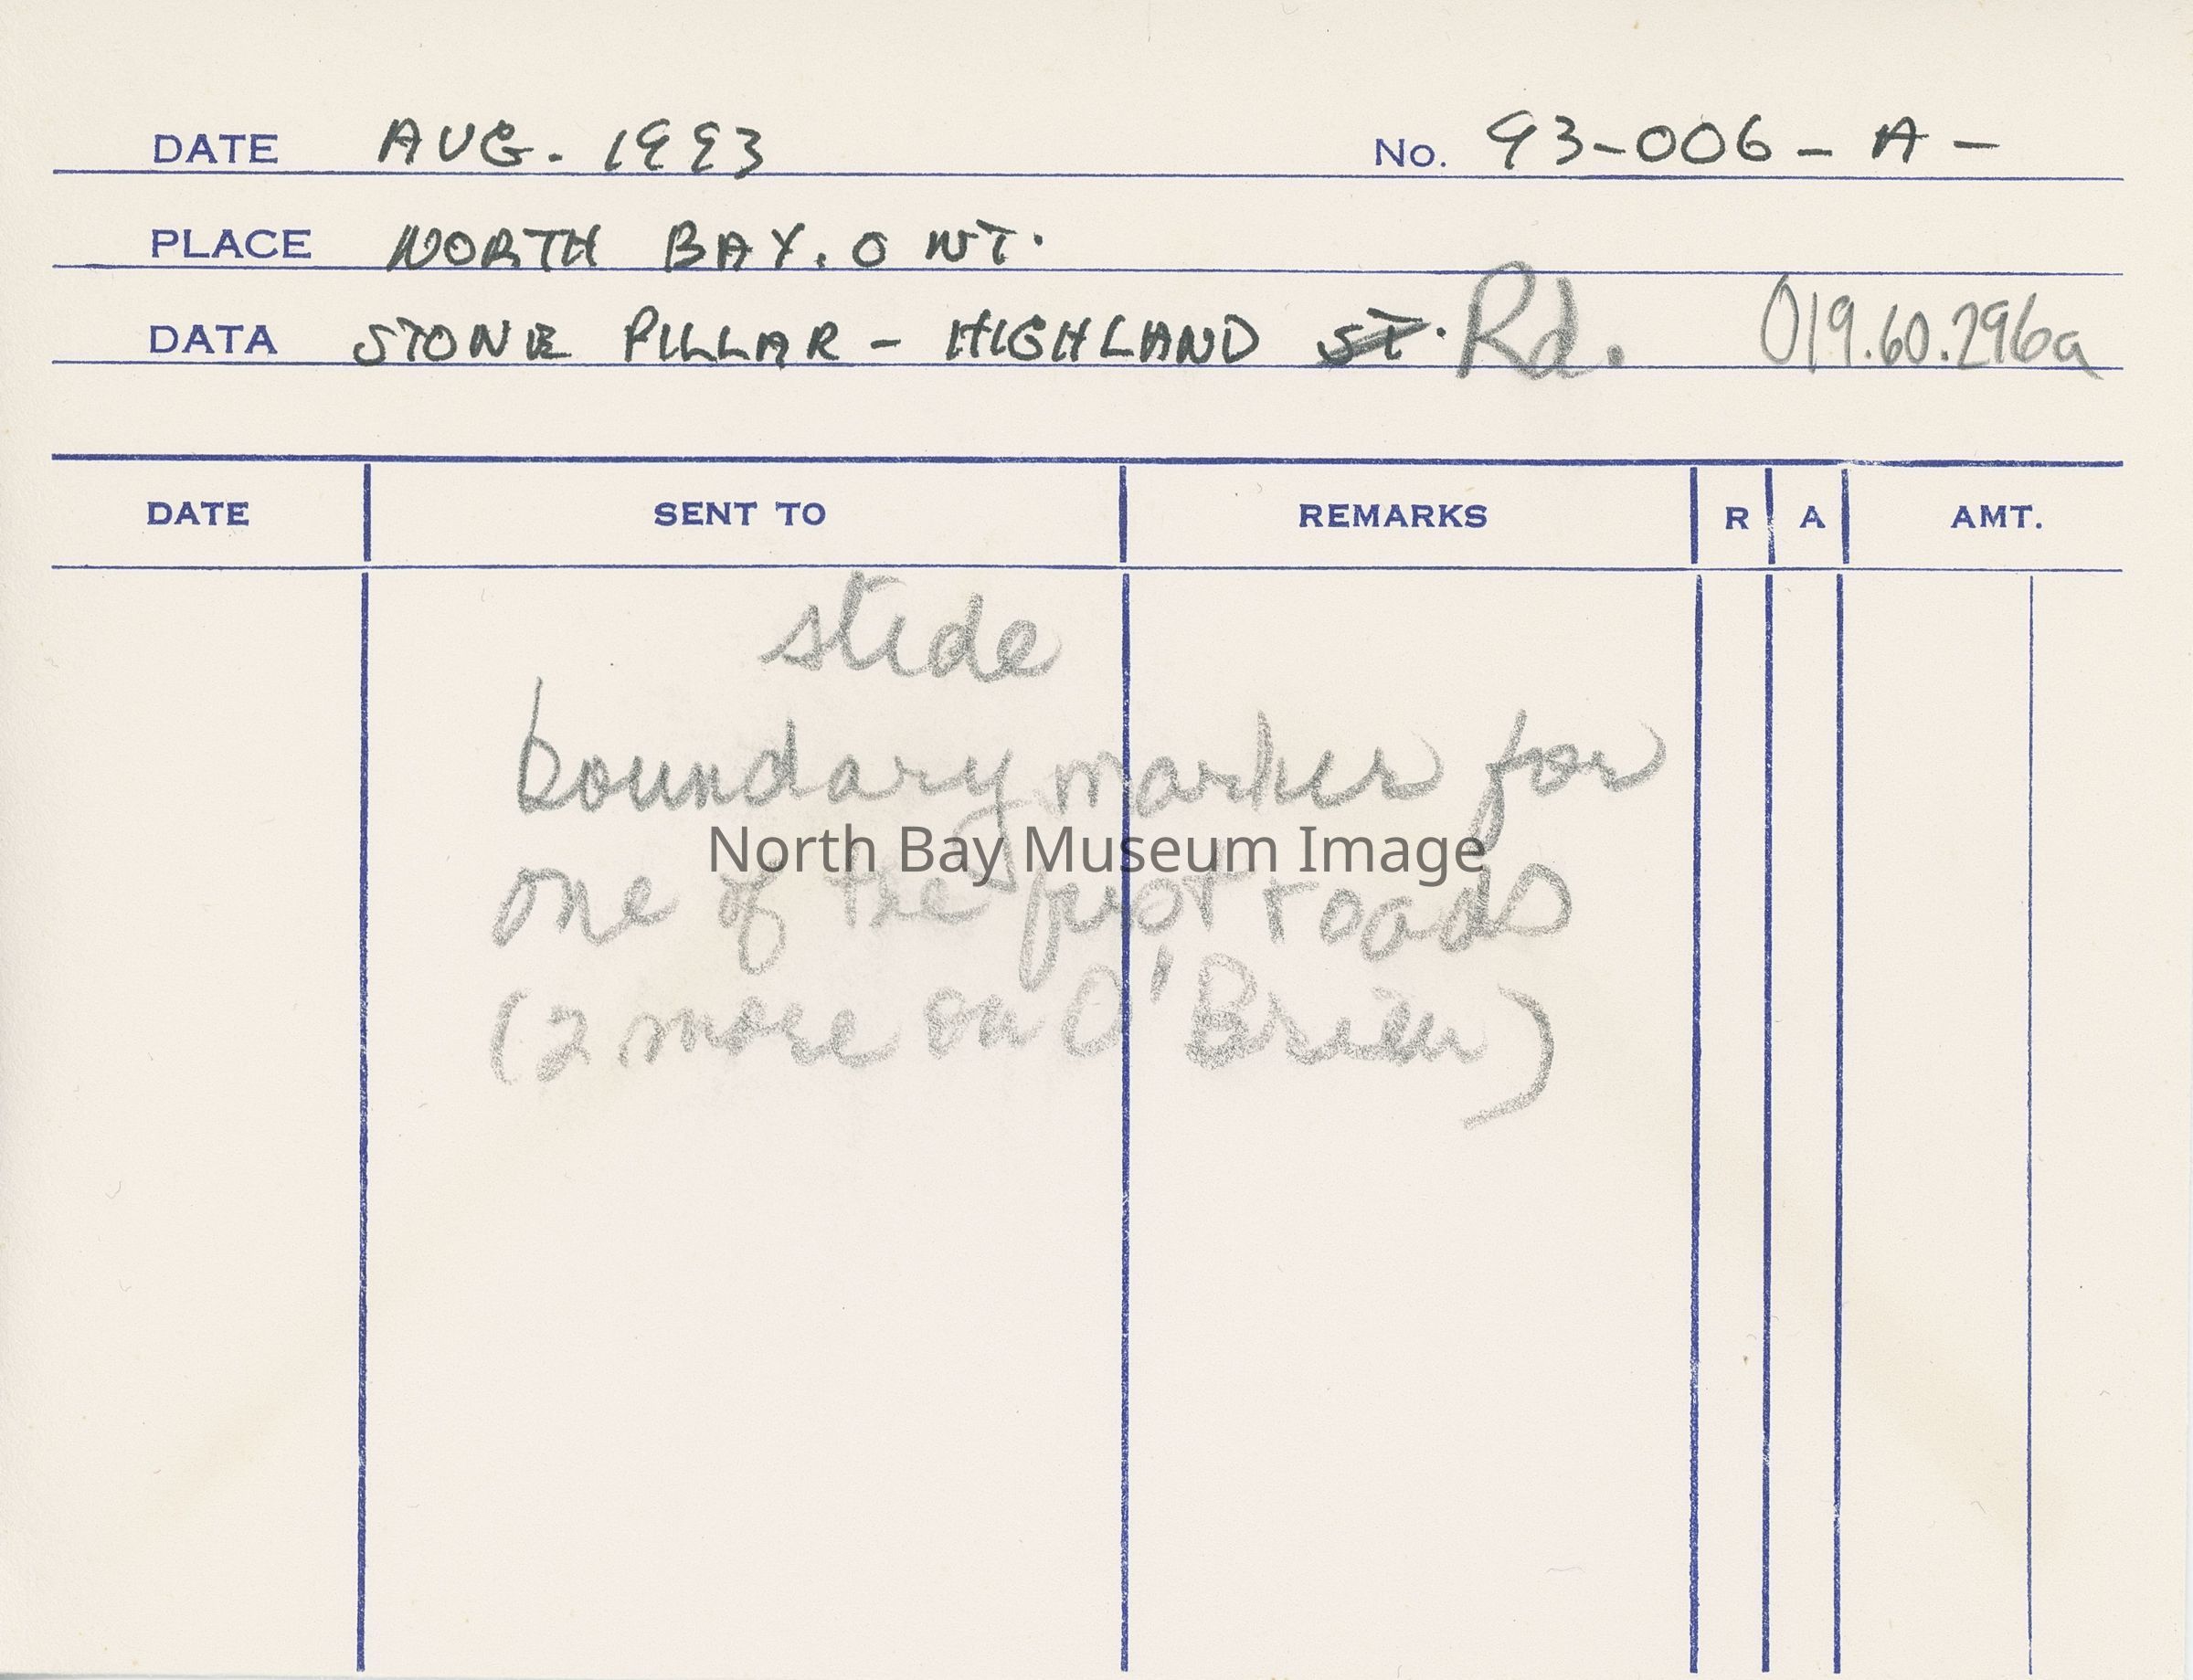 DATE AUG. 1993 No. 93-006-A-
PLACE NORTH BAY. ONT.
DATA STONE PILLAR - HIGHLAND ST. Rd. 019.60.296a
DATE SENT TO REMARKS R A AMT.
slide
boundary marker for
North Bay Museum Image
one of the first roads
(2 more on O'Brien)